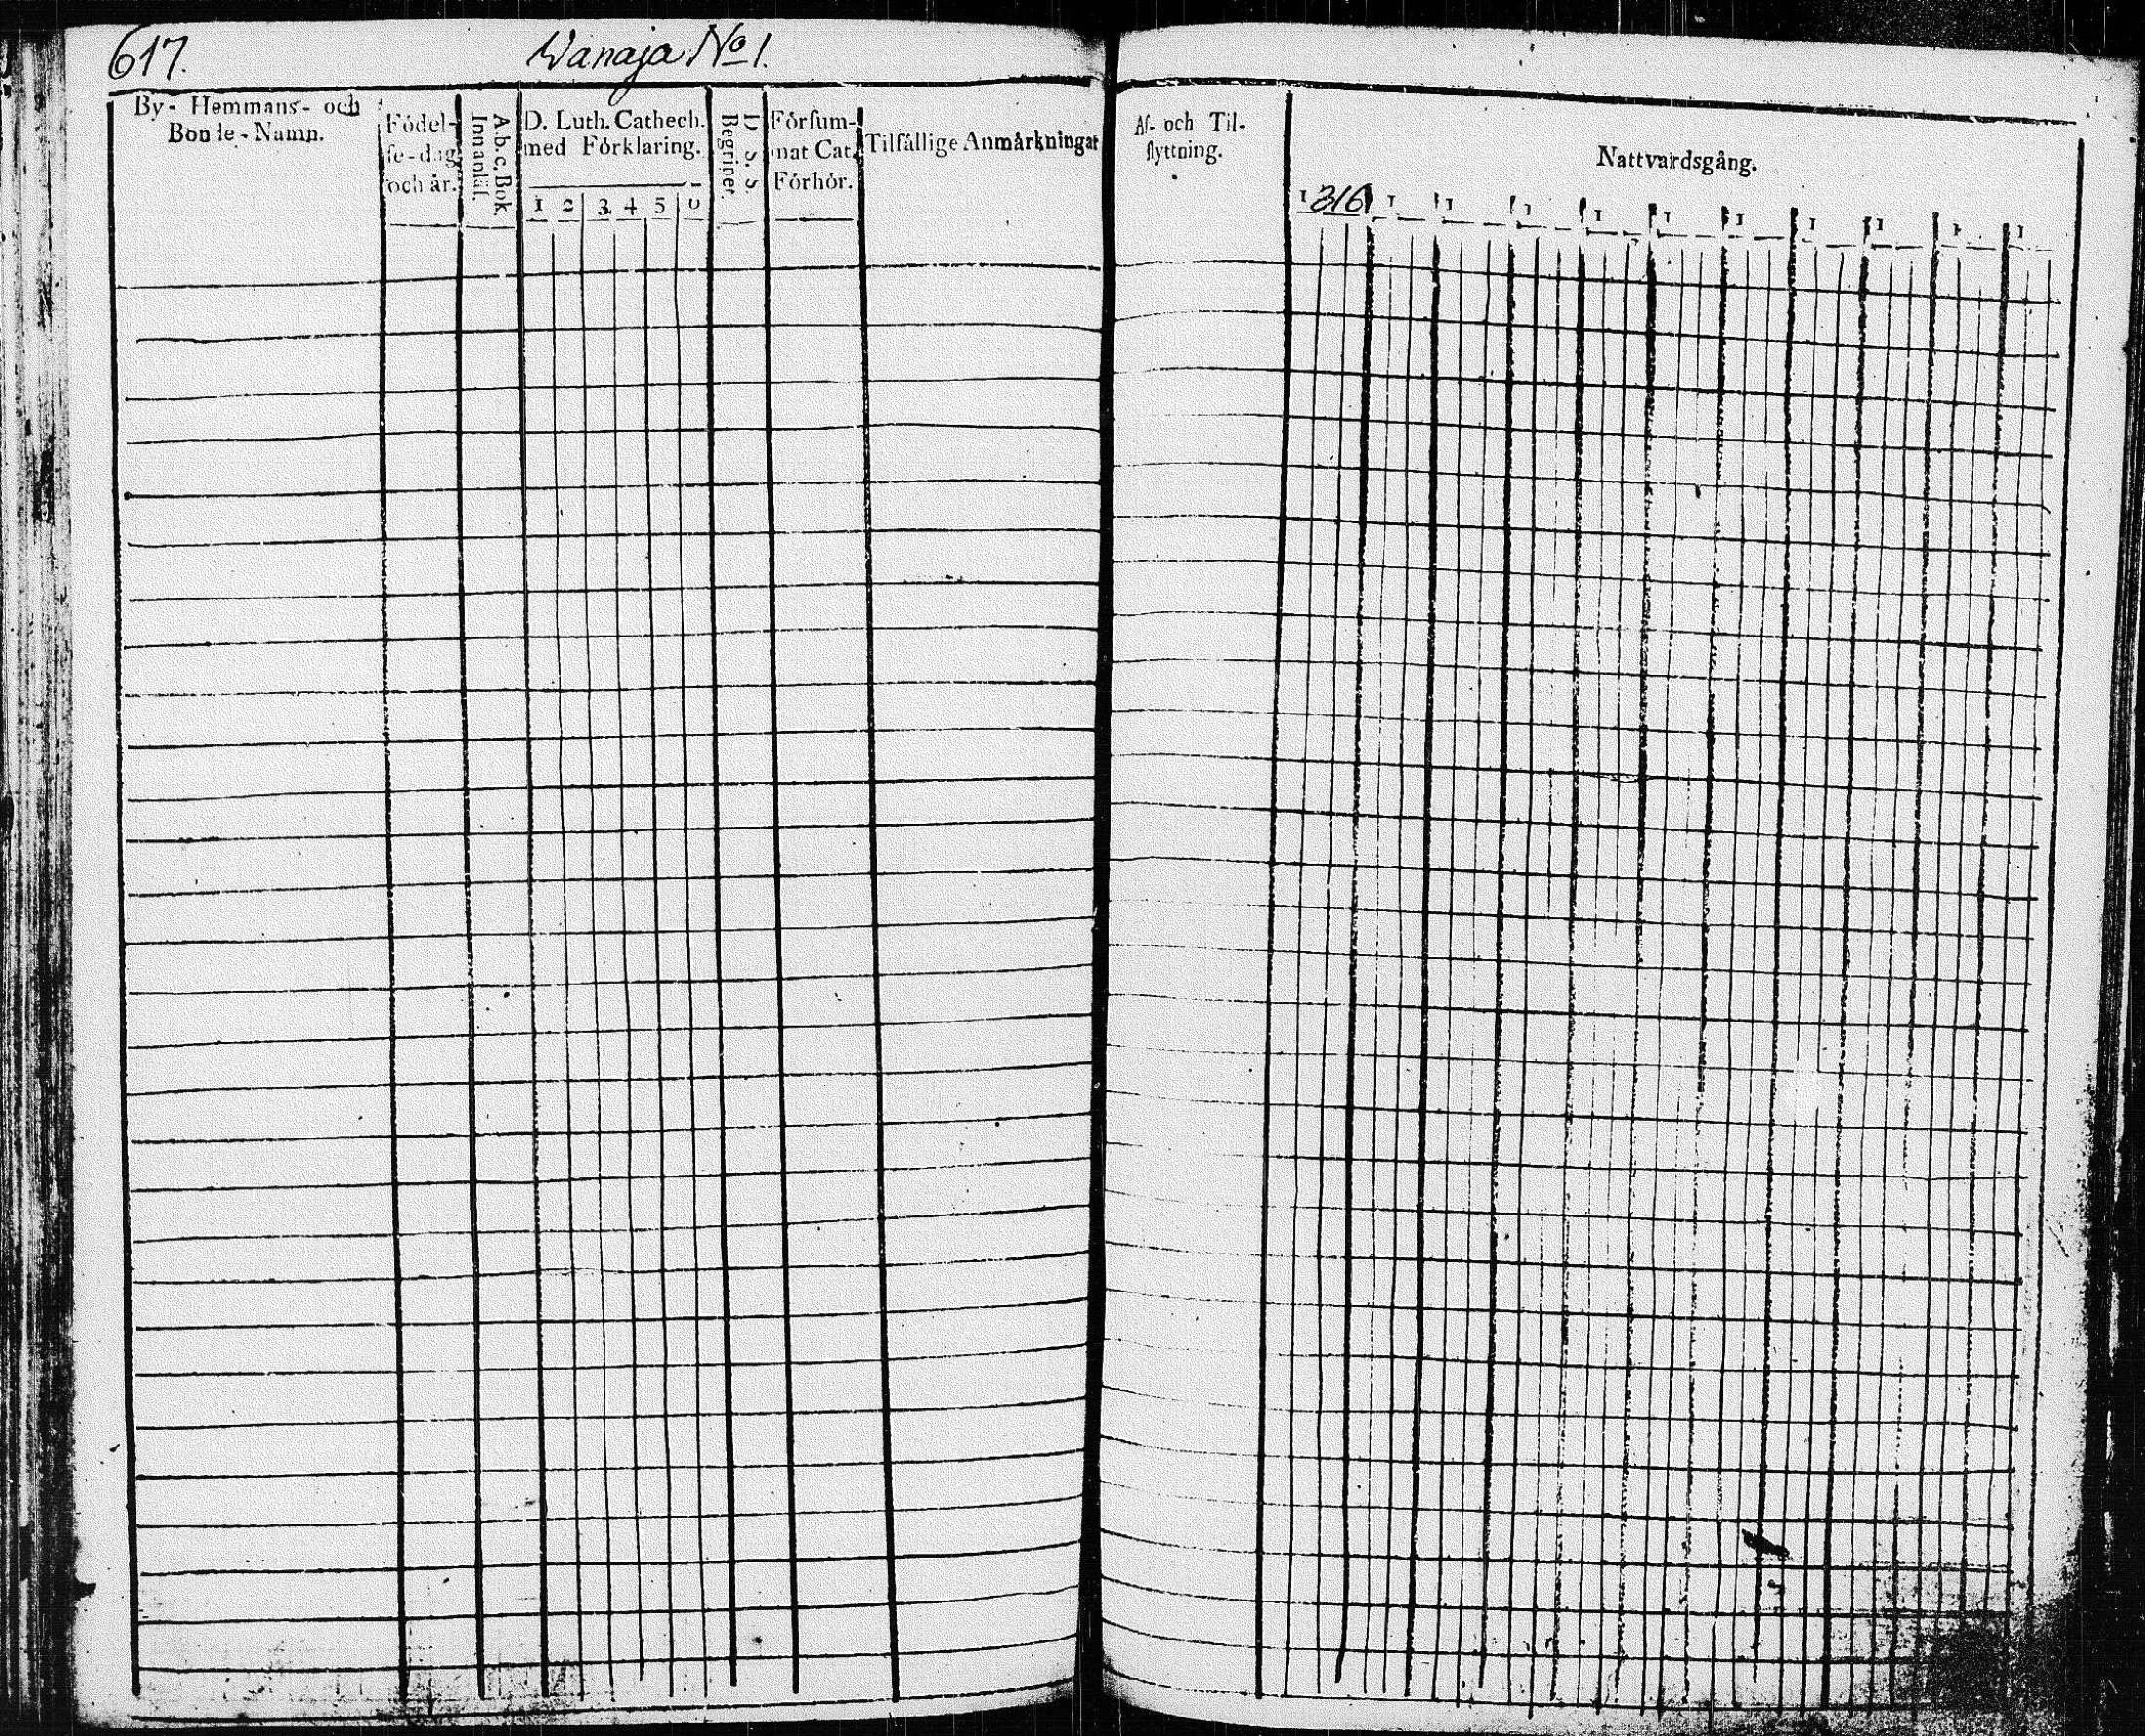 617.
Wanaja No 1.
By- Hemmans- och
Bonde-Namn.
Födel-
se-dag
och år.
A.b.c. Bok.
Innanläs.
D. Luth. Cathech.
med Förklaring.
1 2 3 4 5 6
Begriper.
Försum-
nat Cat.
Förhör.
Tilfällige Anmärkningar
Af- och Til-
flyttning.
Nattvardsgång.
1816 1 1 1 1 1 1 1 1 1 1